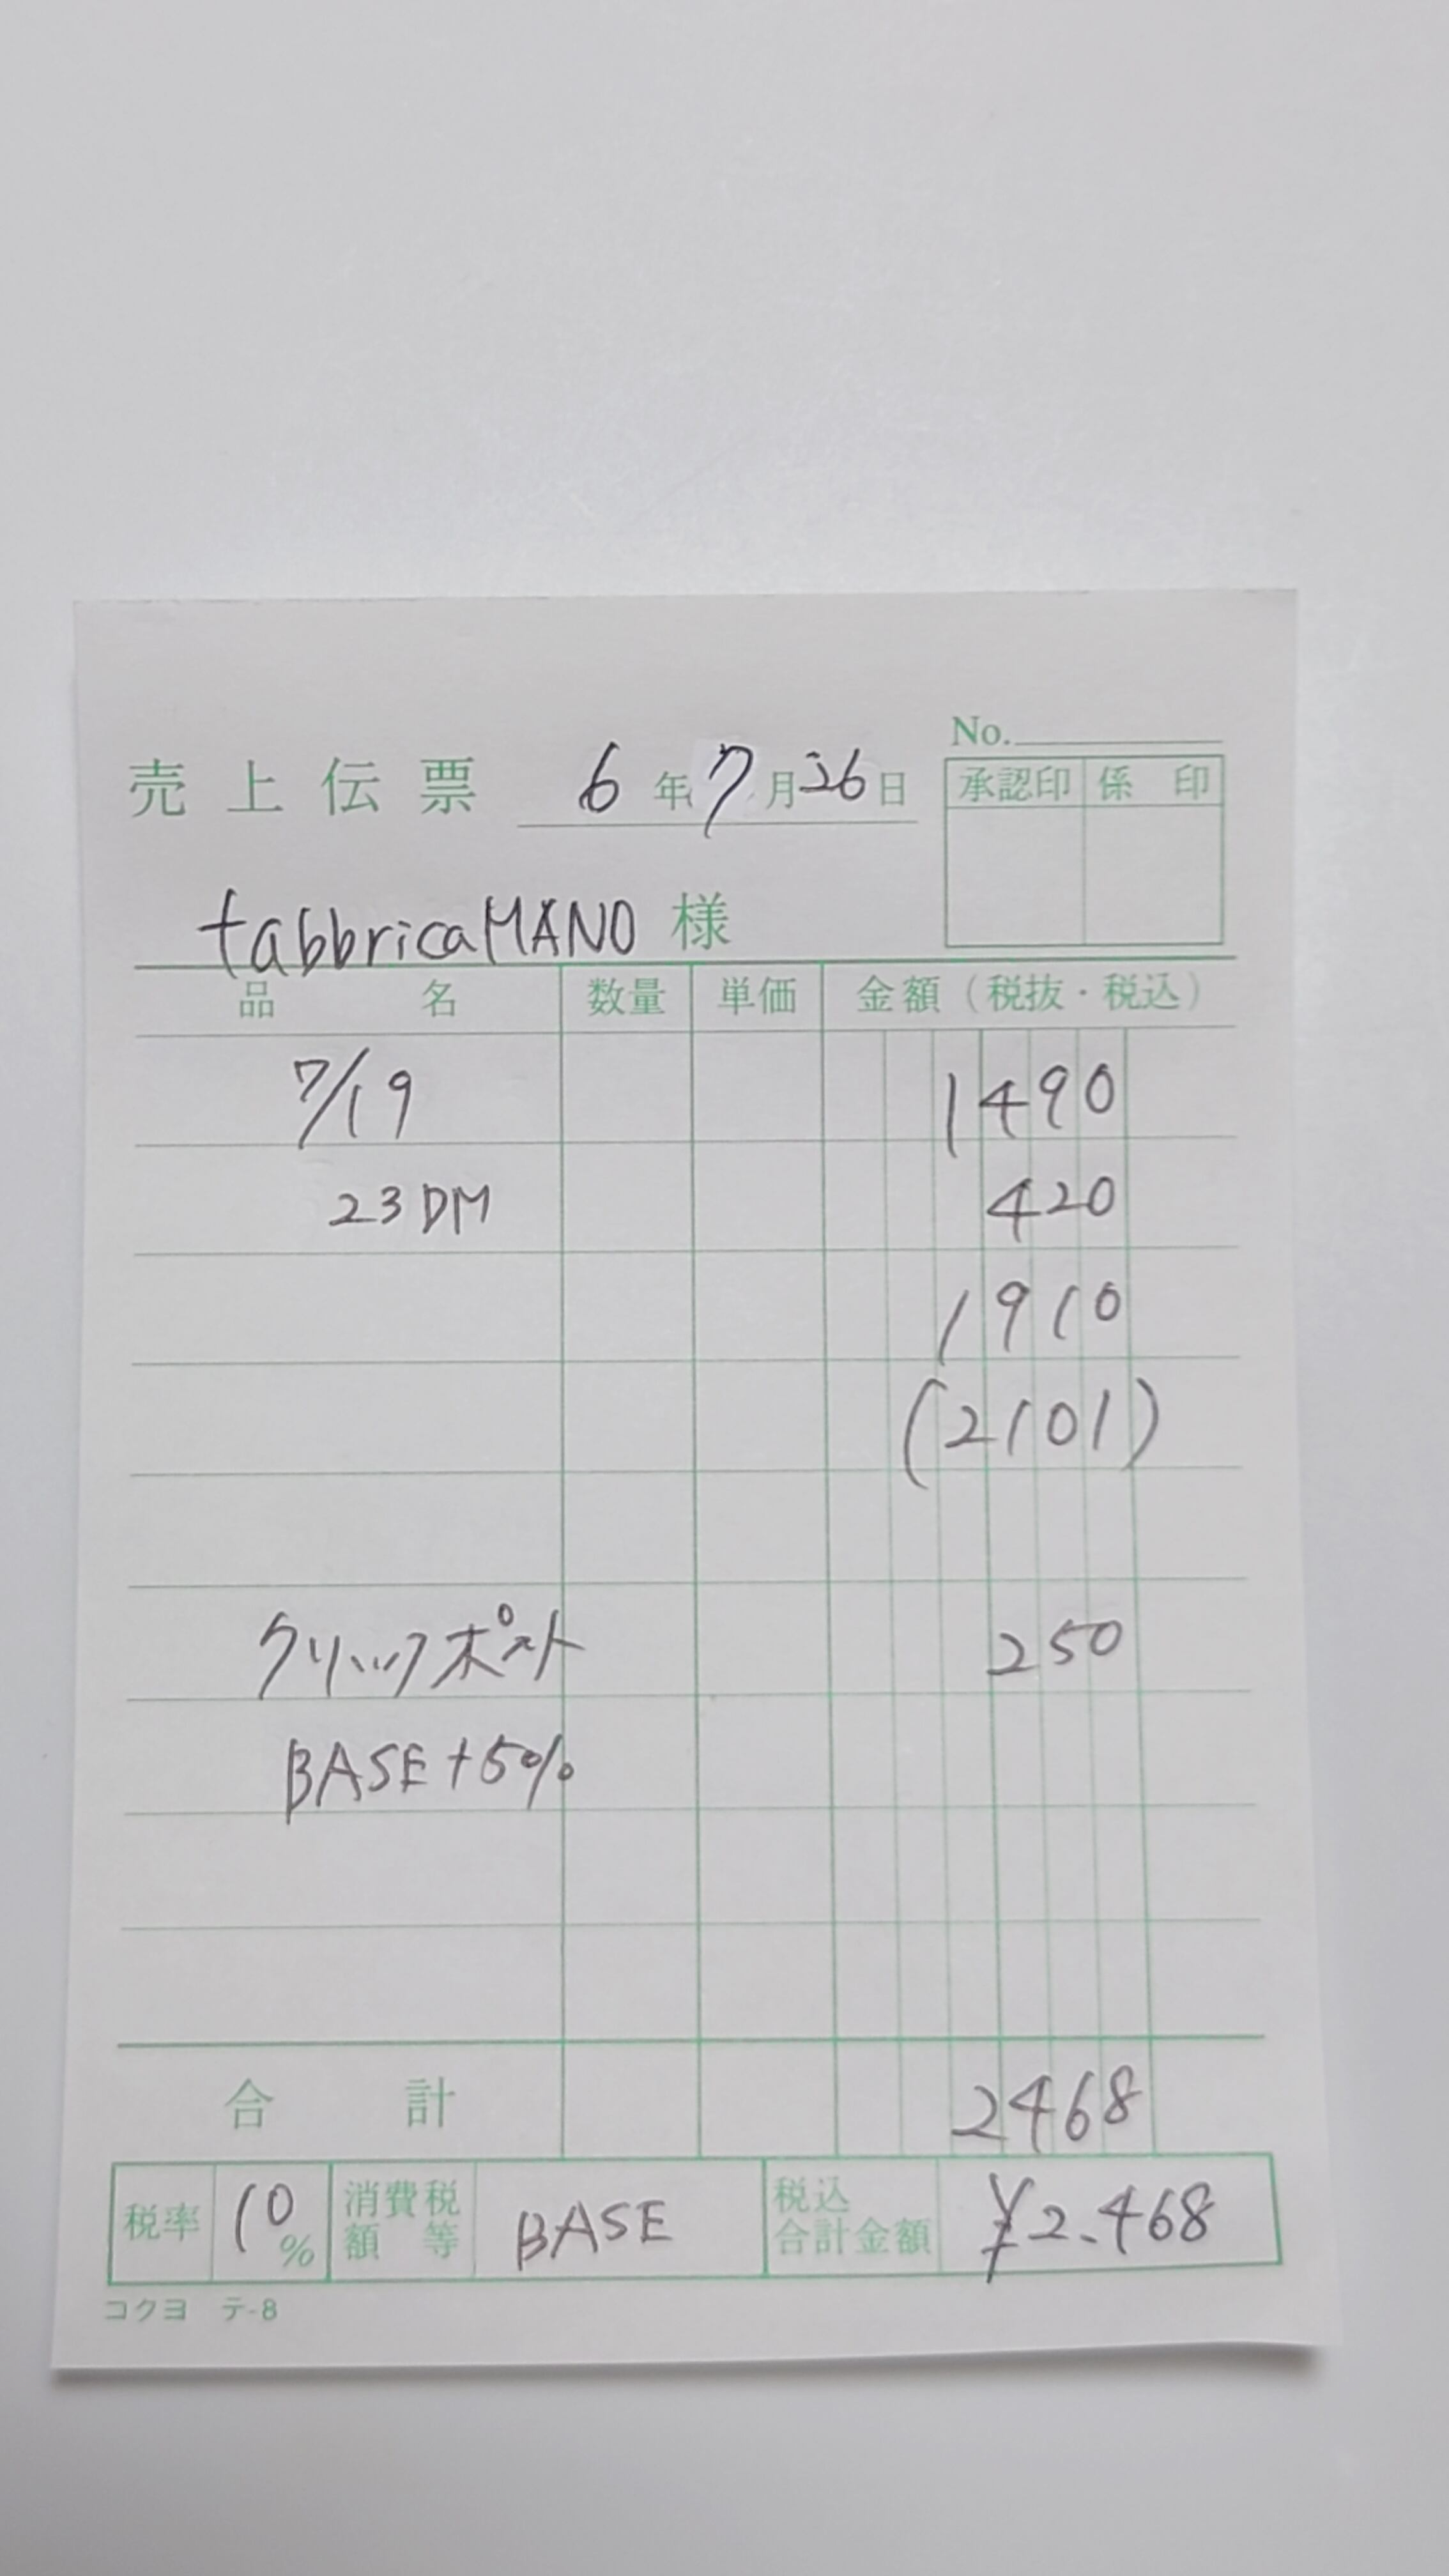 No.
売上伝票 6年7月26日
承認印 係印
fabbricaMANO 様
品名 数量 単価 金額（税抜・税込）
7/19 1490
23DM 420
1910
(2101)
クリックポスト 250
BASE+5%
合計 2468
税率 10% 消費税額等 BASE 税込合計金額 ¥2.468
コクヨ テ-8